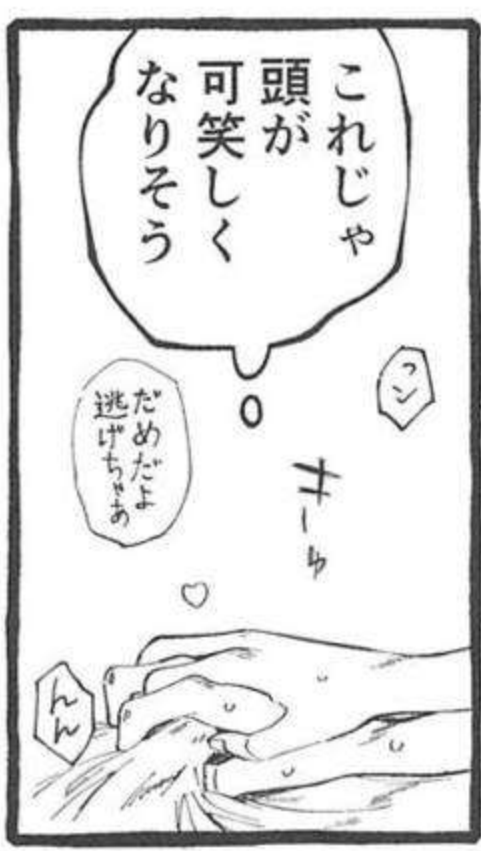 これじゃ
頭が
可笑しく
なりそう
っン
だめだよ
逃げちゃあ
きーゅ
んん